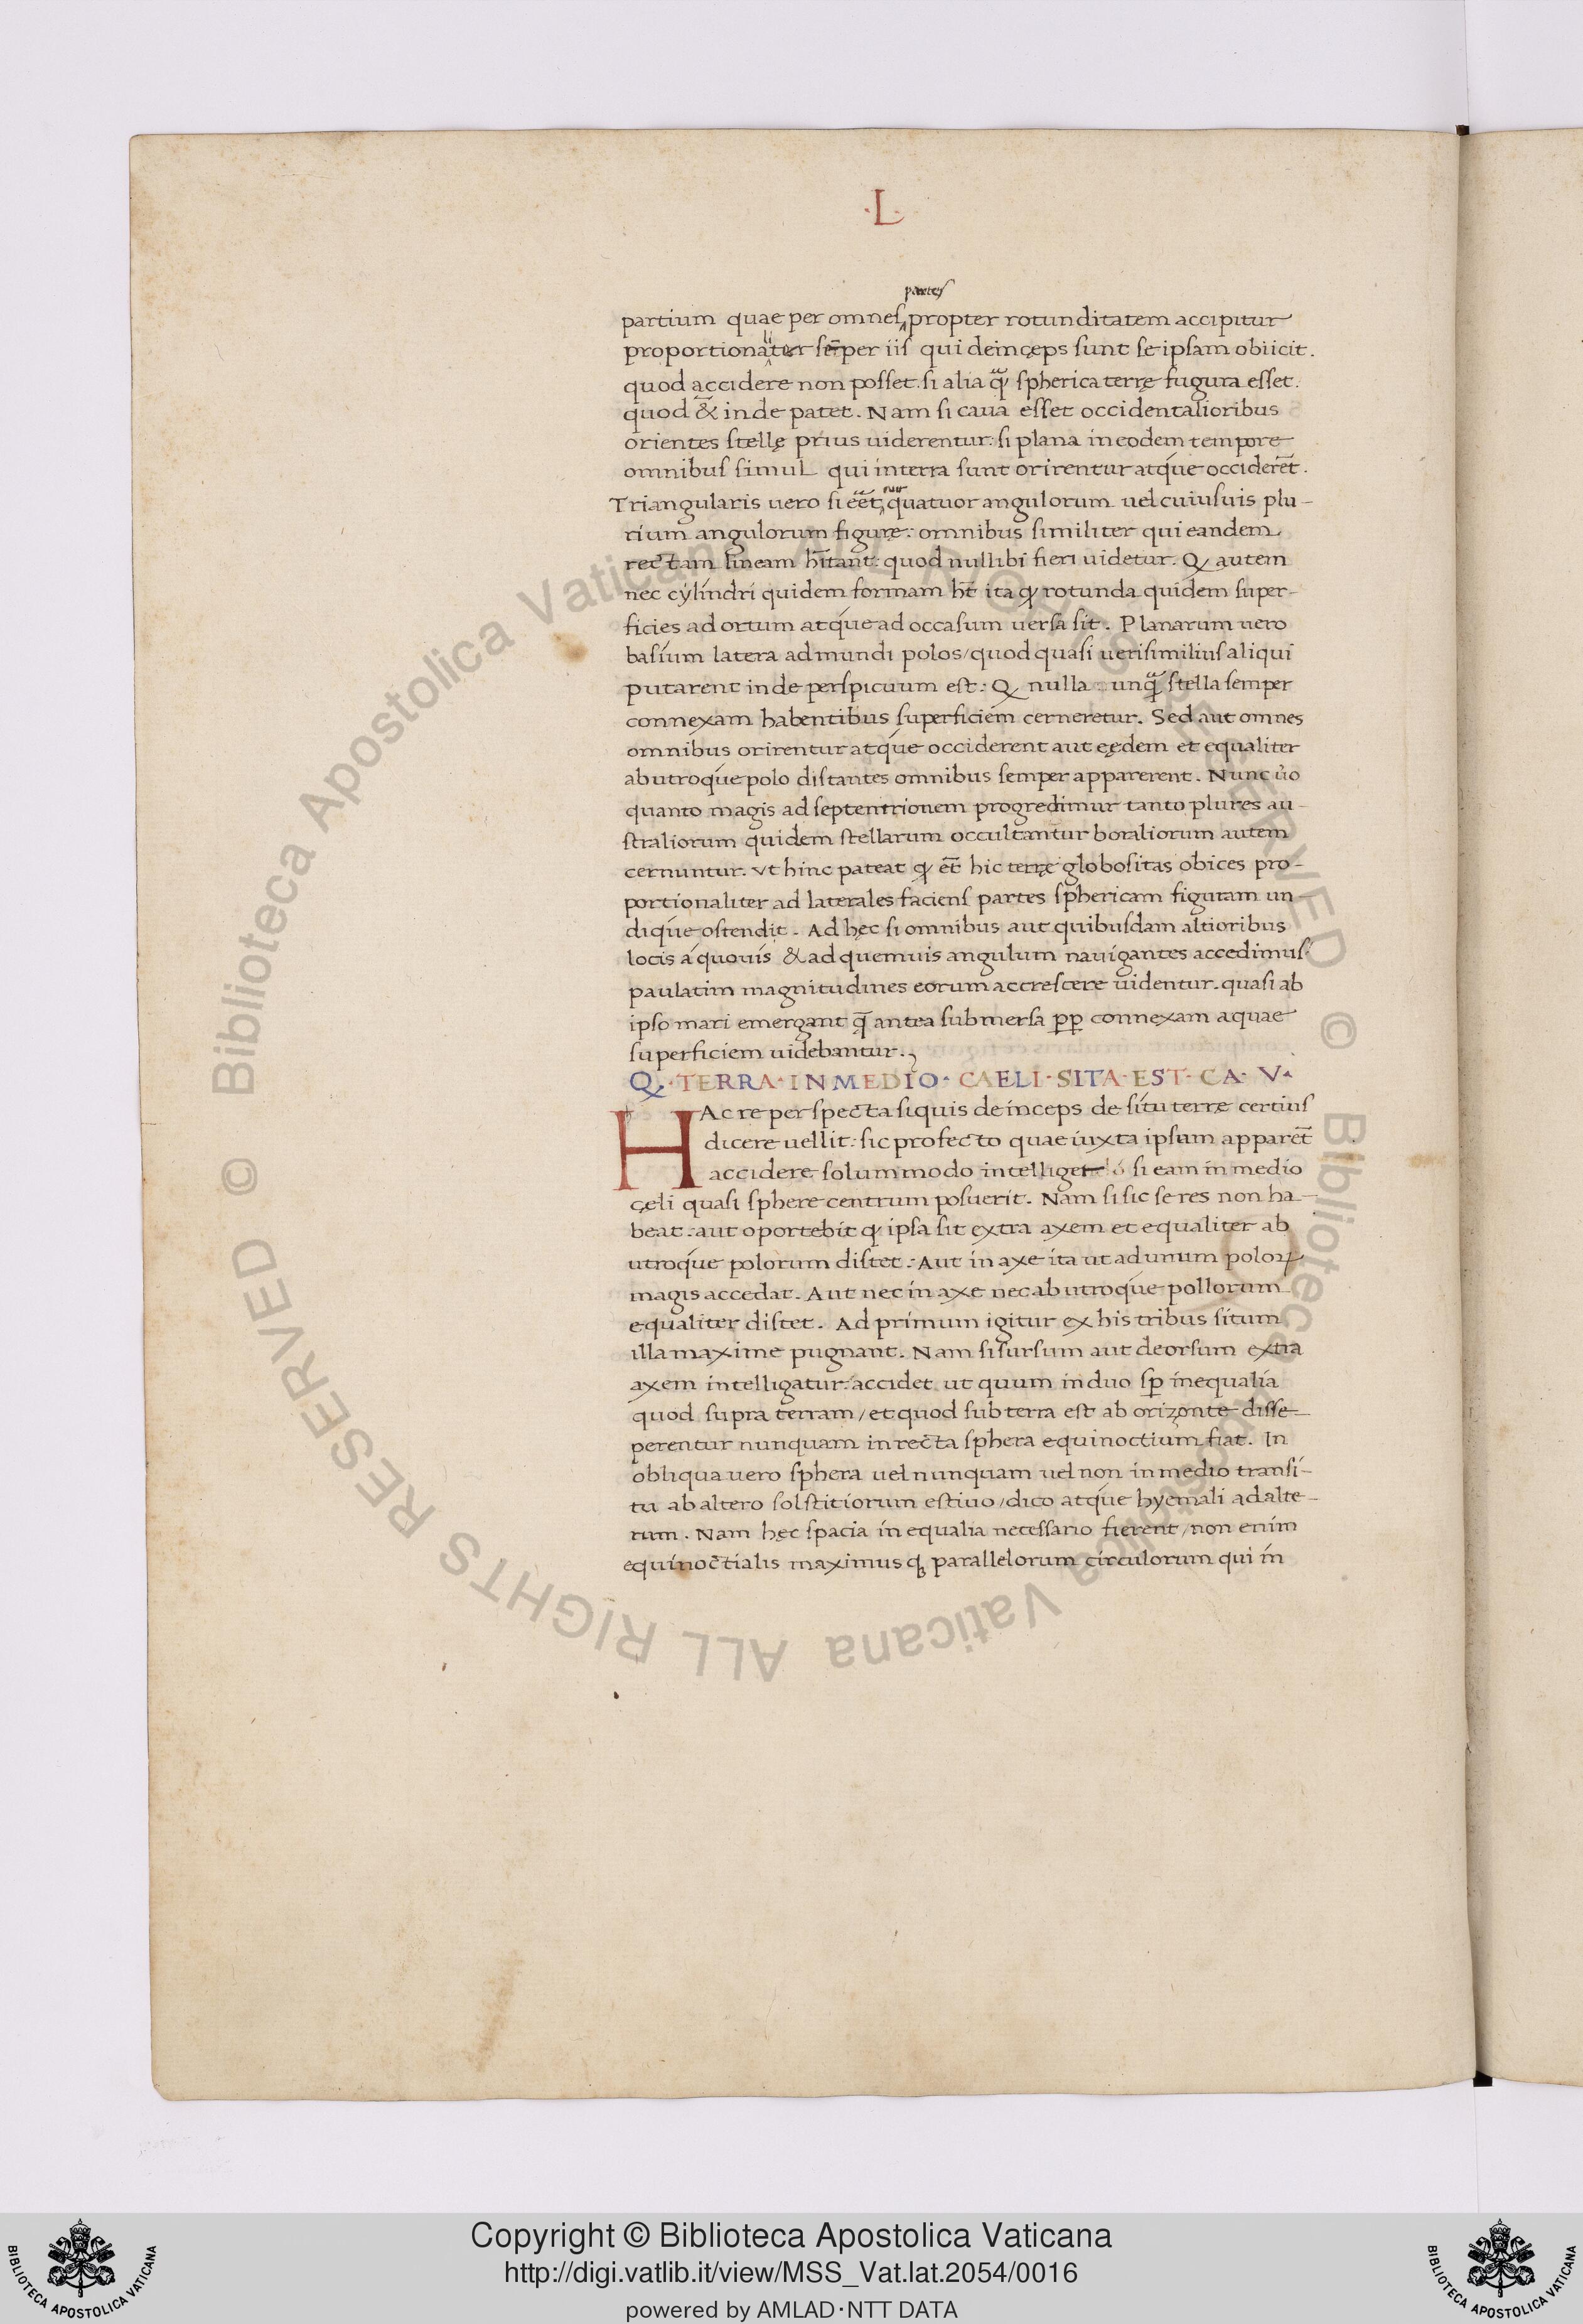 ·L·
partes
partium quae per omnes propter rotunditatem accipitur
proportionaliter semper iis qui deinceps sunt se ipsam obiicit.
quod accidere non posset. si alia q̃ spherica terrę fugura esset.
quod & inde patet. Nam si caua esset occidentalioribus
orientes stellę prius uiderentur: si plana in eodem tempore
omnibus simul qui interra sunt orirentur atq́ue occiderẽt.
Triangularis uero si eẽt quatuor angulorum uel cuiusuis plu-
rium angulorum figurę: omnibus similiter qui eandem
rectam lineam hĩtant: quod nullibi fieri uidetur. Q autem
nec cylindri quidem formam hẽt ita ꝙ rotunda quidem super-
ficies ad ortum atq́ue ad occasum uersa sit. Planarum uero
basium latera ad mundi polos/quod quasi uerisimilius aliqui
putarent inde perspicuum est: Q nulla unq̃ stella semper
connexam habentibus superficiem cerneretur. Sed aut omnes
omnibus orirentur atq́ue occiderent aut eędem et equaliter
ab utroq́ue polo distantes omnibus semper apparerent. Nunc ũo
quanto magis ad septentrionem progredimur tanto plures au-
straliorum quidem stellarum occultantur boraliorum autem
cernuntur. vt hinc pateat ꝙ et̃ hic terrę globositas obices pro-
portionaliter ad laterales faciens partes sphericam figuram un-
diq́ue ostendit. Ad hęc si omnibus aut quibusdam altioribus
locis a quouis & ad quemuis angulum nauigantes accedimus:
paulatim magnitudines eorum accrescere uidentur. quasi ab
ipso mari emergant q̃ antea submersa ꝑꝑ connexam aquae
superficiem uidebantur.
Q· TERRA· IN MEDIO· CAELI· SITA· EST· CA· V·
HAc re perspecta siquis deinceps de situ terrę certius
dicere uellit: sic profecto quae iuxta ipsum apparẽt
accidere solummodo intelliget si eam in medio
cęli quasi sphere centrum posuerit. Nam si sic se res non ha-
beat: aut oportebit ꝙ ipsa sit extra axem et equaliter ab
utroq́ue polorum distet: Aut in axe ita ut ad unum poloꝝ
magis accedat. Aut nec in axe nec ab utroq́ue pollorum
equaliter distet. Ad primum igitur ex his tribus situm
illa maxime pugnant. Nam si sursum aut deorsum extra
axem intelligatur: accidet ut quum in duo sp̱ inequalia
quod supra terram/et quod sub terra est ab orizonte disse-
perentur nunquam in recta sphera equinoctium fiat. In
obliqua uero sphera uel nunquam uel non in medio transi-
tu ab altero solstitiorum estiuo/dico atq́ue hyemali ad alte-
rum. Nam hęc spacia in equalia necessario fierent/non enim
equinoctialis maximus q; parallelorum circulorum qui in
© Biblioteca Apostolica Vaticana ALL RIGHTS RESERVED © Biblioteca Apostolica Vaticana ALL RIGHTS RESERVED
Copyright © Biblioteca Apostolica Vaticana
http://digi.vatlib.it/view/MSS_Vat.lat.2054/0016
powered by AMLAD·NTT DATA
BIBLIOTECA APOSTOLICA VATICANA
BIBLIOTECA APOSTOLICA VATICANA